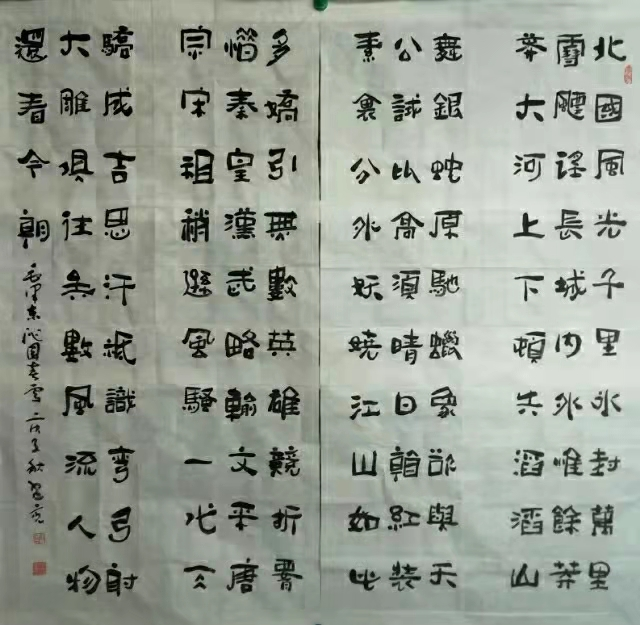 北國風光千里氷封萬里
雪飄謡長城内外惟餘莽
莽大河上下頓失滔滔山
舞銀蛇原馳蠟象欲與天
公試比高須晴日看紅装
素裹分外妖嬈江山如此
多嬌引無數英雄競折腰
惜秦皇漢武略輸文采唐
宗宋祖稍遜風騷一代天
驕成吉思汗祗識彎弓射
大雕俱往矣數風流人物
還看今朝
毛澤東沁園春雪 戊子秋